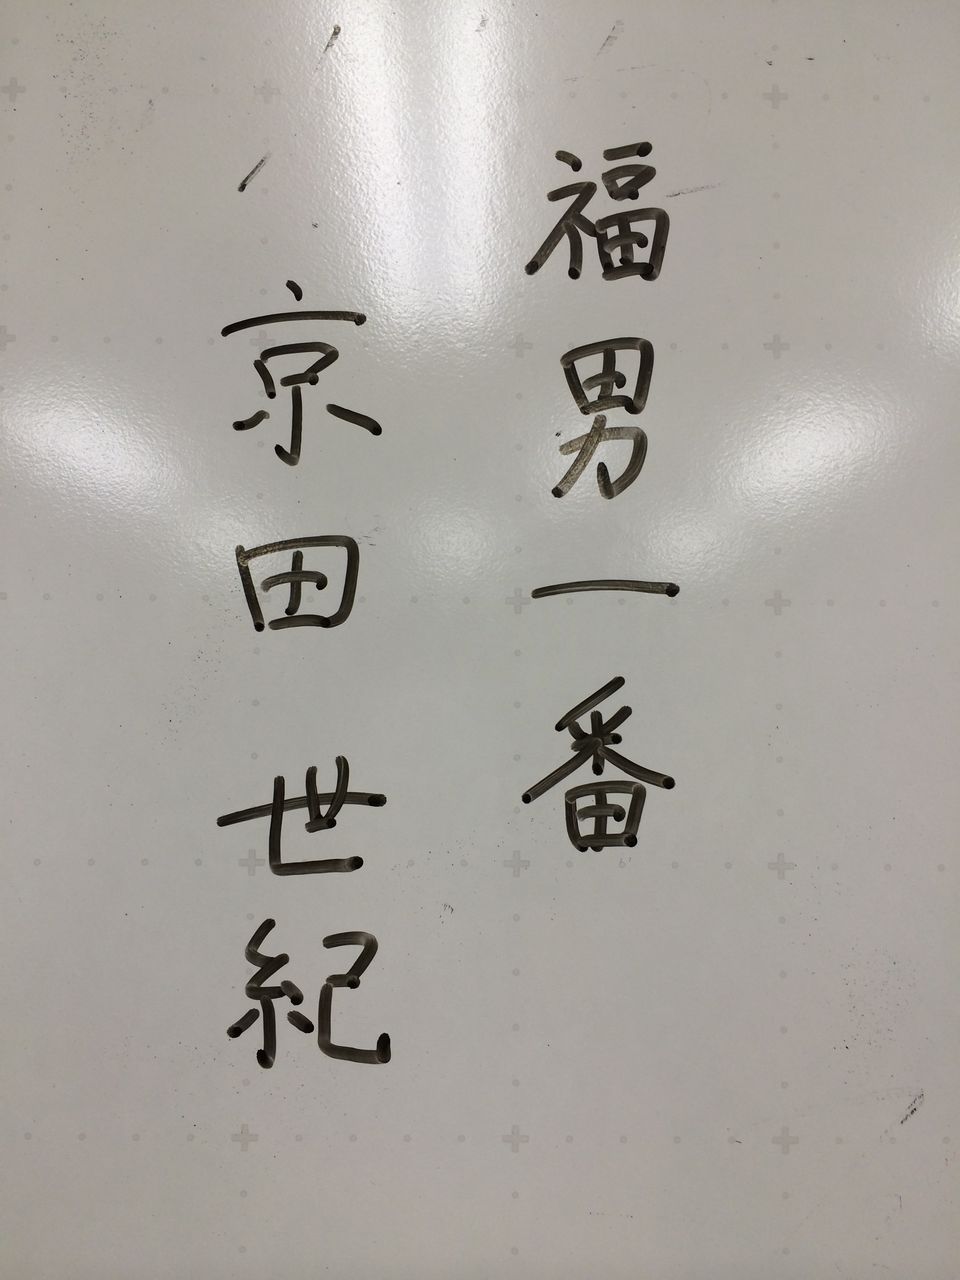 福男一番
京田世紀